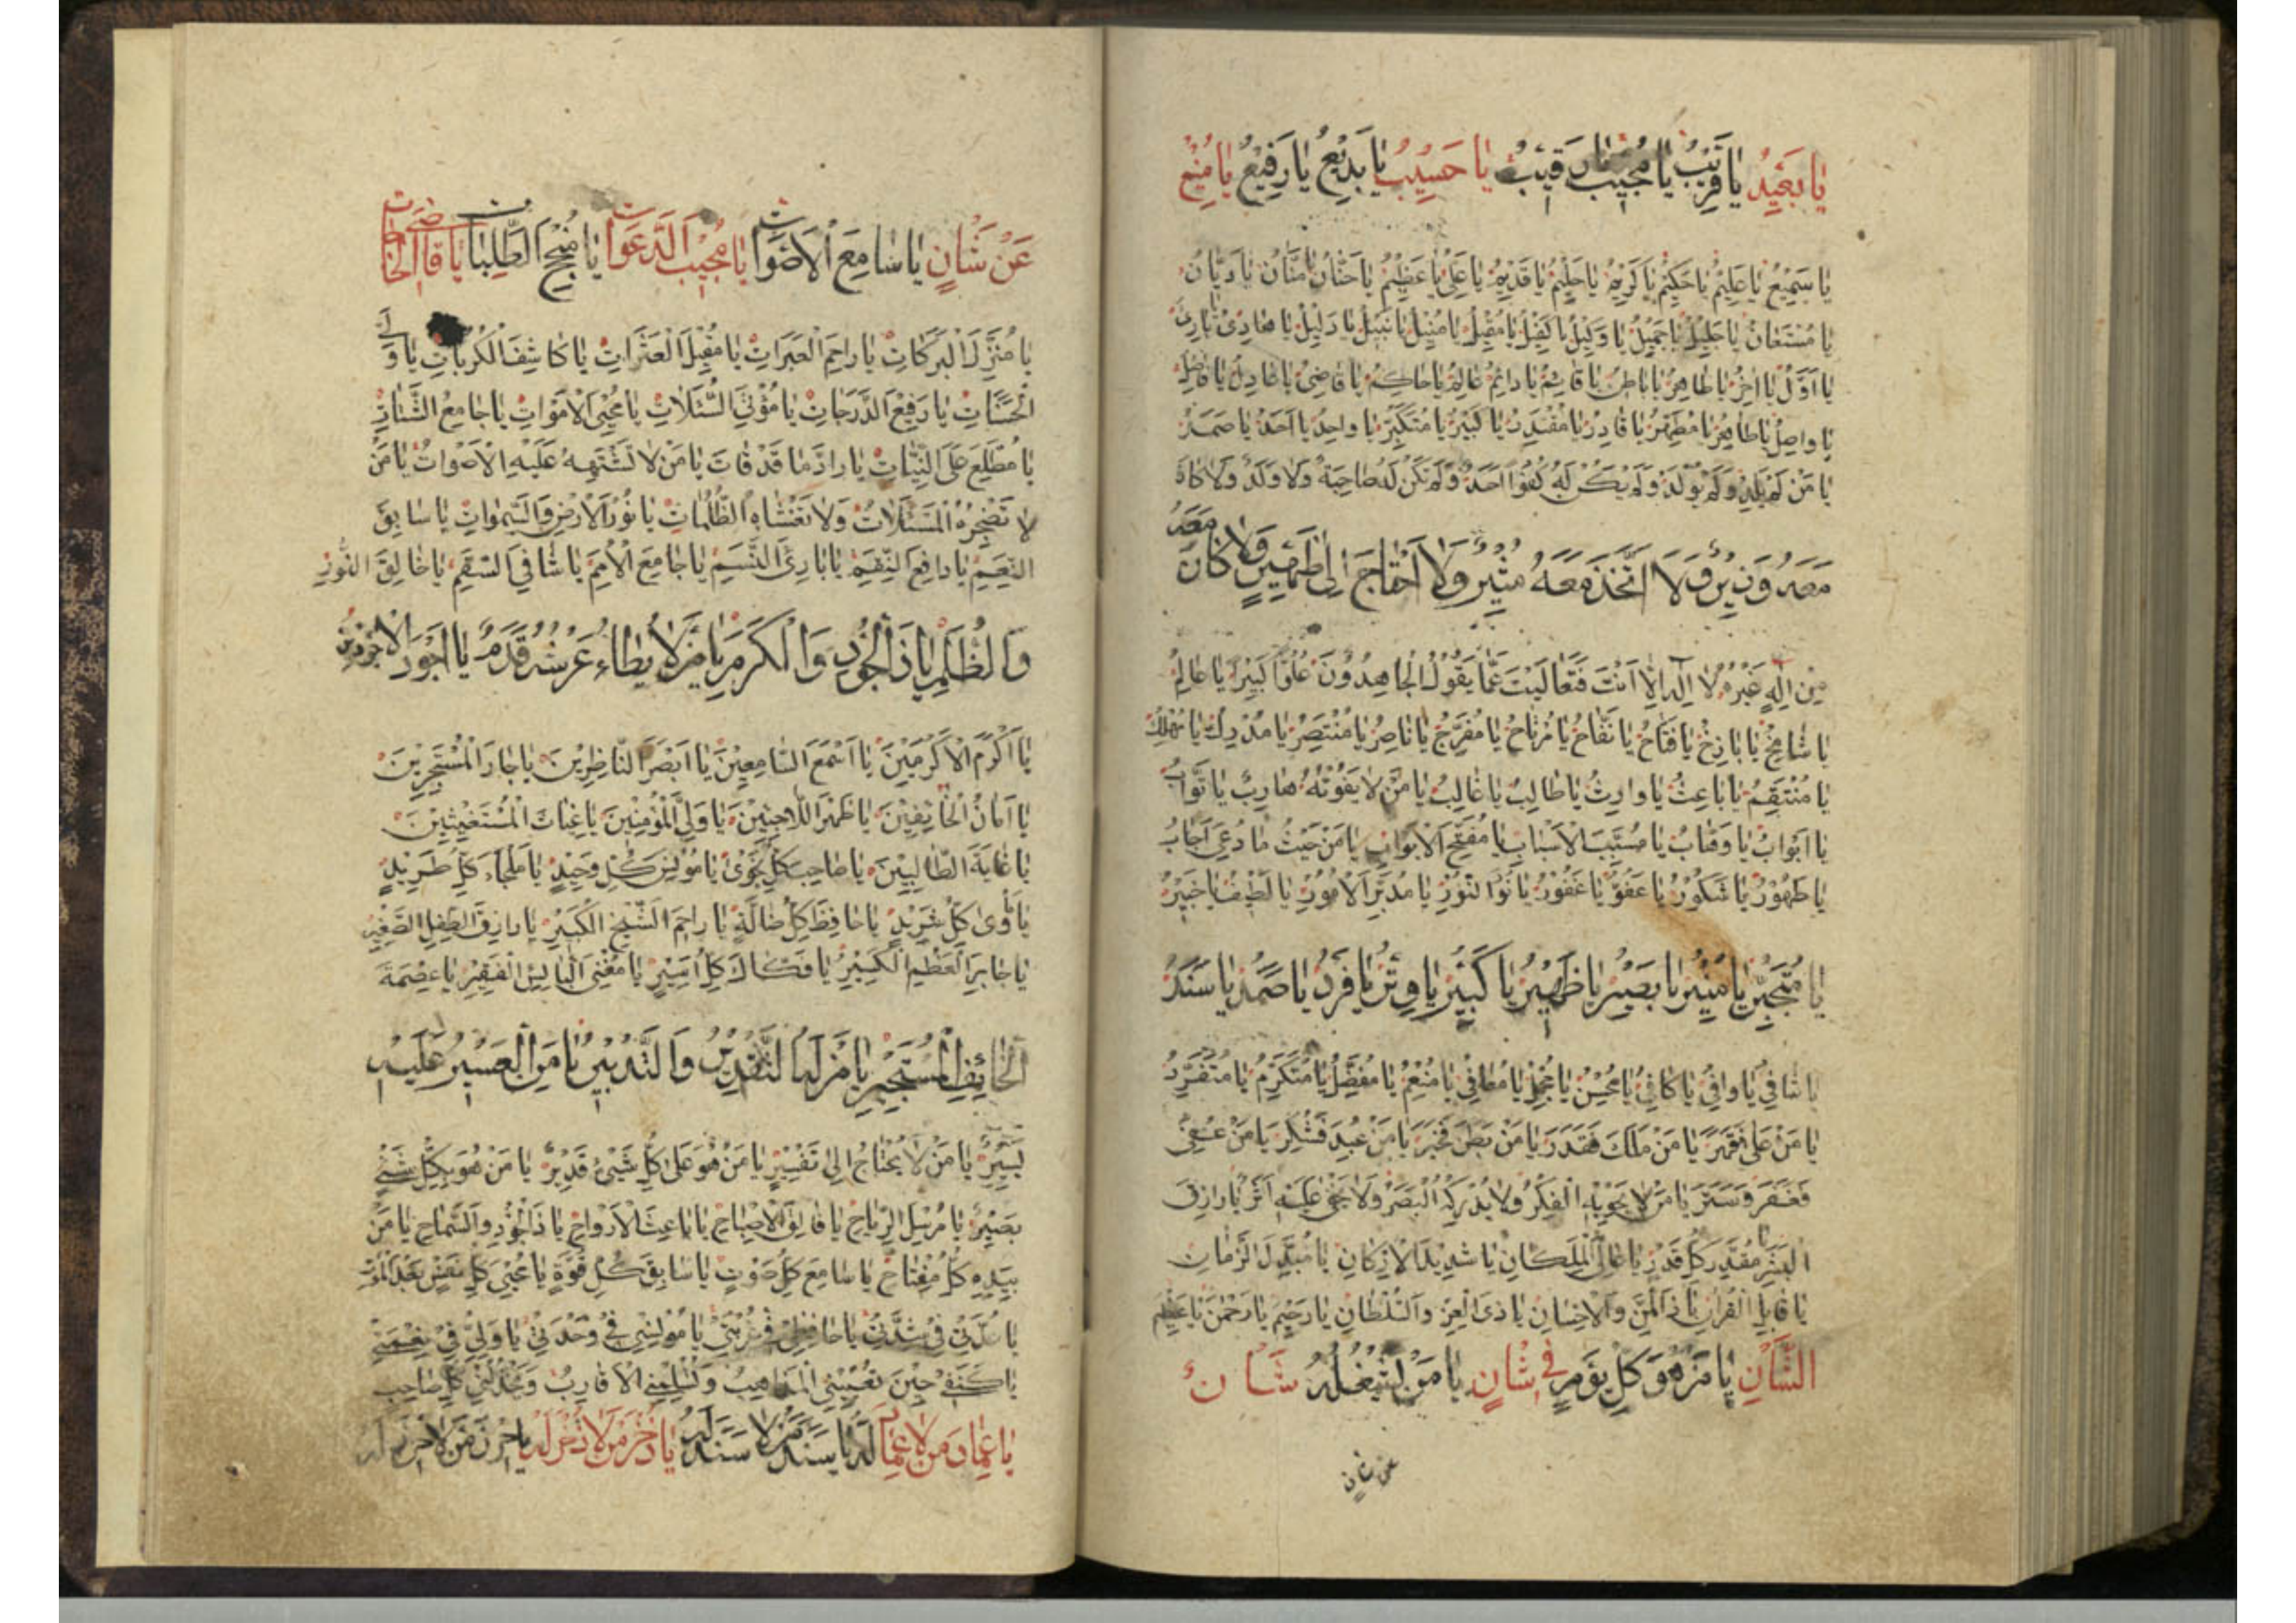 يا بَعيدُ يا قَريبُ يا مُجيبُ يا رَقيبُ يا حَسيبُ يا بَديعُ يا رَفيعُ يا مَنيعُ
يا سَميعُ يا عَليمُ يا حَكيمُ يا كَريمُ يا حَليمُ يا قَديمُ يا عَلِيُّ يا عَظيمُ يا حَنّانُ يا مَنّانُ يا دَيّانُ
يا مُسْتَعانُ يا جَليلُ يا جَميلُ يا وَكيلُ يا كَفيلُ يا مُقيلُ يا مُنيلُ يا نَبيلُ يا دَليلُ يا هادِي يا بادِئُ
يا اَوَّلُ يا اخِرُ يا ظاهِرُ يا باطِنُ يا قائِمُ يا دائِمُ عالِمُ يا حاكِمُ يا قاضِي يا عادِلُ يا فاضِلُ
يا واصِلُ يا طاهِرُ يا مُطَهِّرُ يا قادِرُ يا مُقْتَدِرُ يا كَبيرُ يا مُتَكَبِّرُ يا واحِدُ يا اَحَدُ يا صَمَدُ
يا مَنْ لَمْ يَلِدْ وَلَمْ يُولَدْ وَلَمْ يَكُنْ لَهُ كُفُوًا اَحَدٌ وَلَمْ تَكُنْ لَهُ صاحِبَةٌ وَلا وَلَدٌ وَلا كانَ
مَعَهُ وَزيرٌ وَلا اتَّخَذَ مَعَهُ مُشيرٌ وَلا احْتاجَ اِلى ظَهيرٍ وَلا كانَ مَعَهُ
مِن اِلهٍ غَيْرُهُ لا اِلهَ اِلّا اَنْتَ فَتَعالَيْتَ عَمّا يَقُولُ الْجاهِدُونَ عُلُوًّا كَبيرًا يا عالِمُ
يا شامِخُ يا باذِخُ يا فَتّاحُ يا نَفّاحُ يا مُرْتاحُ يا مُفَرِّجُ يا ناصِرُ يا مُنْتَصِرُ يا مُدْرِكُ يا مُهْلِكُ
يا مُنْتَقِمُ يا باعِثُ يا وارِثُ يا طالِبُ يا غالِبُ يا مَنْ لا يَفُوتُهُ هارِبٌ يا تَوّابُ
يا اَوّابُ يا وَهّابُ يا مُسَبِّبَ الْاَسْبابِ يا مُفَتِّحَ الْاَبْوابِ يا مَنْ حَيْثُ ما دُعِيَ اَجابَ
يا طَهُورُ يا شَكُورُ يا عَفُوُّ يا غَفُورُ يا نُورَ النُّورِ يا مُدَبِّرَ الْاُمُورِ يا لَطيفُ يا خَبيرُ
يا مُتَجَبِّرُ يا مُنيرُ يا بَصيرُ يا ظَهيرُ يا كَبيرُ يا وِتْرُ يا فَرْدُ يا صَمَدُ يا سَنَدُ
يا شافي يا وافي يا كافي يا مُحْسِنُ يا مُجْمِلُ يا مُعافي يا مُنْعِمُ يا مُفَضِّلُ يا مُتَكَرِّمُ يا مُتَفَرِّدُ
يا مَنْ عَلى فَقَهَرَ يا مَنْ مَلَكَ فَقَدَرَ يا مَنْ بَطَنَ فَخَبَرَ يا مَنْ عُبِدَ فَشَكَرَ يا مَنْ عُصِيَ
فَغَفَرَ وَسَتَرَ يا مَنْ لا تَحْويهِ الْفِكَرُ وَلا يُدْرِكُهُ الْبَصَرُ وَلا يَخْفى عَلَيْهِ اَثَرٌ يا رازِقَ
الْبَشَرِ يا مُقَدِّرَ كُلِّ قَدَرٍ يا عالِيَ الْمَكانِ يا شَديدَ الْاَرْكانِ يا مُبَدِّلَ الزَّمانِ
يا قابِلَ الْقُرْبانِ يا ذَا الْمَنِّ وَالْاِحْسانِ يا ذَي الْعِزِّ وَالسُّلْطانِ يا رَحيمُ يا رَحْمنُ يا عَظيم
الشَّأنِ يا مَنْ هُوَ كُلَّ يَوْمٍ في شَانٍ يا مَنْ لا يَشْغَلُهُ شَانٌ
عن شان
عَنْ شَانٍ يا سامِعَ الْاَصْواتِ يا مُجيبَ الدَّعَواتِ يا مُنْجِحَ الطَّلِباتِ يا قاضِيَ الْحاجاتِ
يا مُنَزِّلَ الْبَرَكاتِ يا راحِمَ الْعَبَراتِ يا مُقيلَ الْعَثَراتِ يا كاشِفَ الْكُرُباتِ يا وَلِيَّ
الْحَسَناتِ يا رَفيعَ الدَّرَجاتِ يا مُؤْتِيَ السُّئَلاتِ يا مُحْيِيَ الْاَمْواتِ يا جامِعَ الشَّتاتِ
يا مُطَّلِعُ عَلَى النِّيّاتِ يا رادَّ ما قَدْ فاتَ يا مَنْ لا تَشْتَبِهُ عَلَيْهِ الْاَصْواتُ يا مَنْ
لا تُضْجِرُهُ الْمَسْئَلاتُ وَلا تَغْشاهُ الظُّلُماتُ يا نُورَ الْاَرْضِ وَالسَّمواتِ يا سابِقَ
النِّعَمِ يا دافِعَ النِّقَمِ يا بارِئَ النَّسَمِ يا جامِعَ الْاُمَمِ يا شافِيَ السَّقَمِ يا خالِقَ النُّورِ
وَالظُّلَمِ يا ذَا الْجُودِ وَالْكَرَمِ يا مَنْ لا يَطاءُ عَرْشَهُ قَدَمٌ يا اَجْوَدَ الْاَجْوَدينَ
يا اَكْرَمَ الْاَكْرَمينَ يا اَسْمَعَ السّامِعينَ يا اَبْصَرَ النّاظِرينَ يا جارَ الْمُسْتَجيرينَ
يا اَمانَ الْخائِفينَ يا ظَهْرَ اللّاجينَ يا وَلِيَّ الْمُؤْمِنينَ يا غِياثَ الْمُسْتَغيثينَ
يا غايَةَ الطّالِبينَ يا صاحِبَ كُلِّ نَجْوى يا مُونِسَ كُلِّ وَحيدٍ يا مَلْجَاءَ كُلِّ طَريدٍ
يا مَأْوى كُلِّ شَريدٍ يا حافِظَ كُلِّ ضالَّةٍ يا راحِمَ الشَّيْخِ الْكَبيرِ يا رازِقَ الطِّفْلِ الصَّغيرِ
يا جابِرَ الْعَظْمِ الْكَسيرِ يا فَكّاكَ كُلِّ اَسيرٍ يا مُغْنِيَ الْبائِسِ الْفَقيرِ يا عِصْمَةَ
الْخائِفِ الْمُسْتَجيرِ يا مَنْ لَهُ التَّقْديرُ وَالتَّدْبيرُ يا مَنِ الْعَسيرُ عَلَيْهِ
يَسيرٌ يا مَنْ لا يَحْتاجُ اِلى تَفْسيرٍ يا مَنْ هُوَ عَلى كُلِّ شَيْئٍ قَديرٌ يا مَنْ هُوَ بِكُلِّ شَيْئٍ
بَصيرٌ يا مُرْسِلَ الرِّياحِ يا فالِقَ الْاِصْباحِ يا باعِثَ الْاَرْواحِ يا ذَا الْجُودِ وَالسَّماحِ يا مَنْ
بِيَدِهِ كُلُّ مِفْتاحٍ يا سامِعَ كُلِّ صَوْتٍ يا سابِقَ كُلِّ فَوْتٍ يا مُحْيِيَ كُلِّ نَفْسٍ بَعْدَ الْمَوْتِ
يا عُدَّتي في شِدَّتي يا حافِظي في غُرْبَتي يا مُونِسي في وَحْدَتي يا وَلِيّي في نِعْمَتي
يا كَنَفي حينَ تُعْييني الْمَذاهِبُ وَتُسَلِّمُنِي الْاَقارِبُ وَيَخْذُلُني كُلُّ صاحِبٍ
يا عِمادَ مَنْ لا عِمادَ لَهُ يا سَنَدَ مَنْ لا سَنَدَ لَهُ يا ذُخْرَ مَنْ لا ذُخْرَ لَهُ يا حِرْزَ مَنْ لا حِرْزَ لَهُ